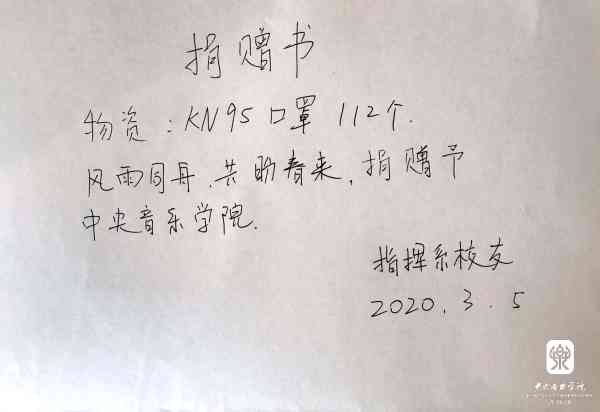 捐赠书
物资：KN95 口罩 112个.
风雨同舟.共盼春来,捐赠予
中央音乐学院.
指挥系校友
2020.3.5
中央音乐学院